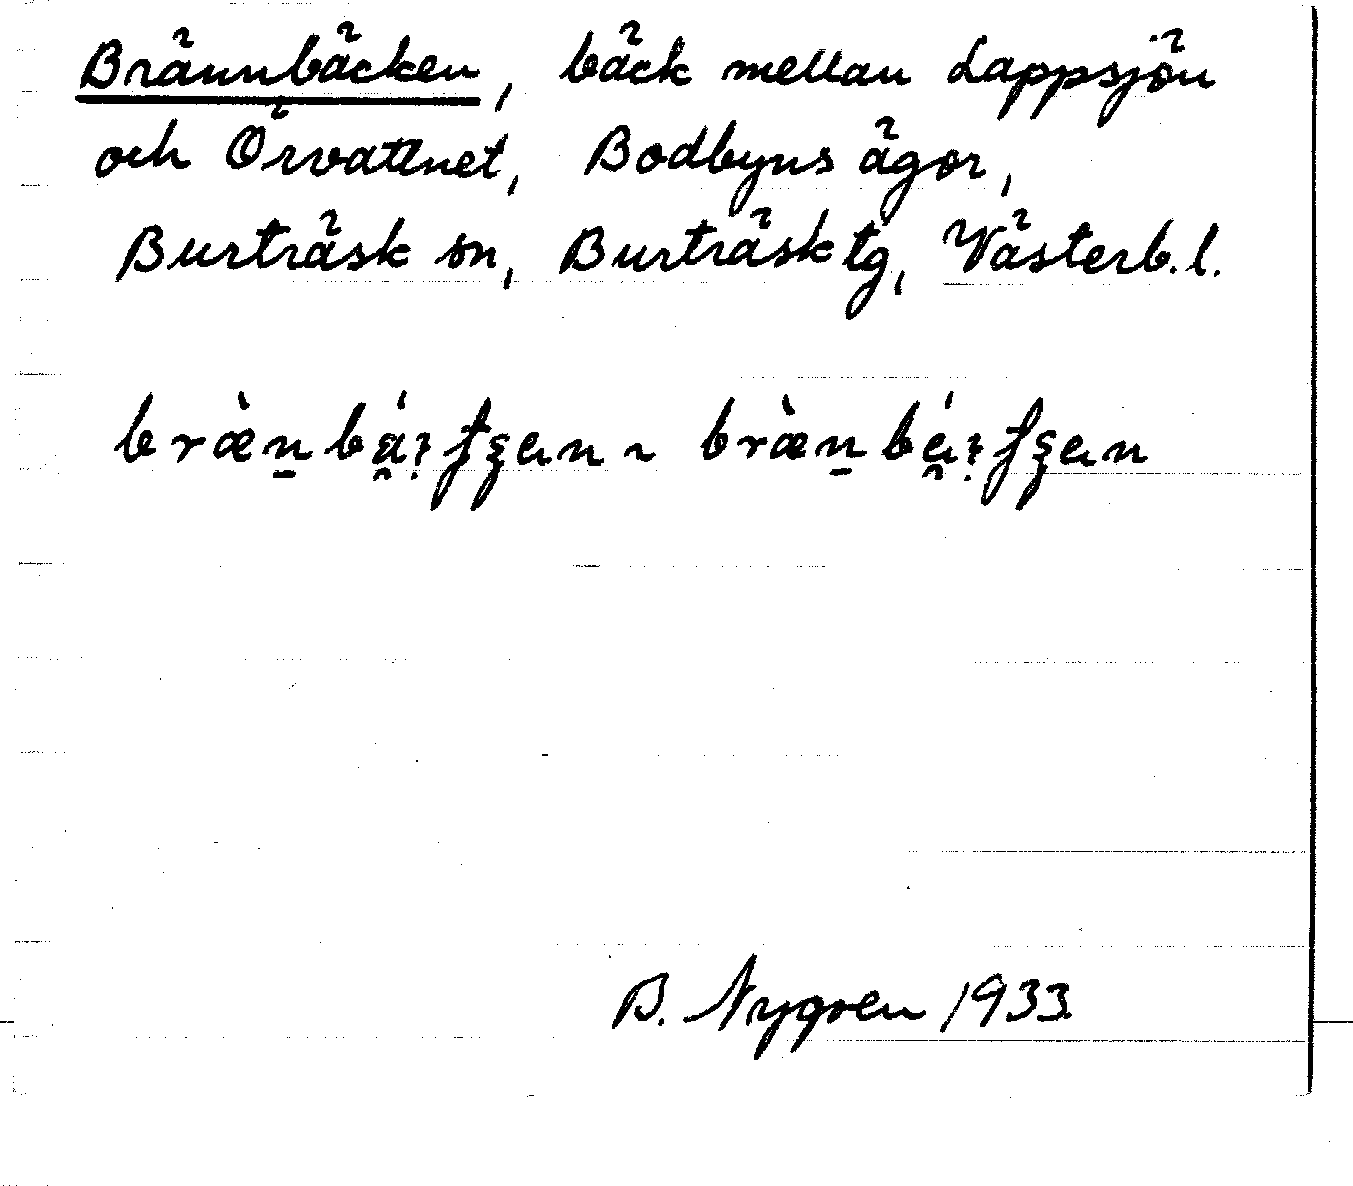 Brännbäcken, bäck mellan Lappsjön
och Örvattnet, Bodbyns ägor,
Burträsk sn, Burträsk tg, Västerb. l.
B. Nygren 1933.